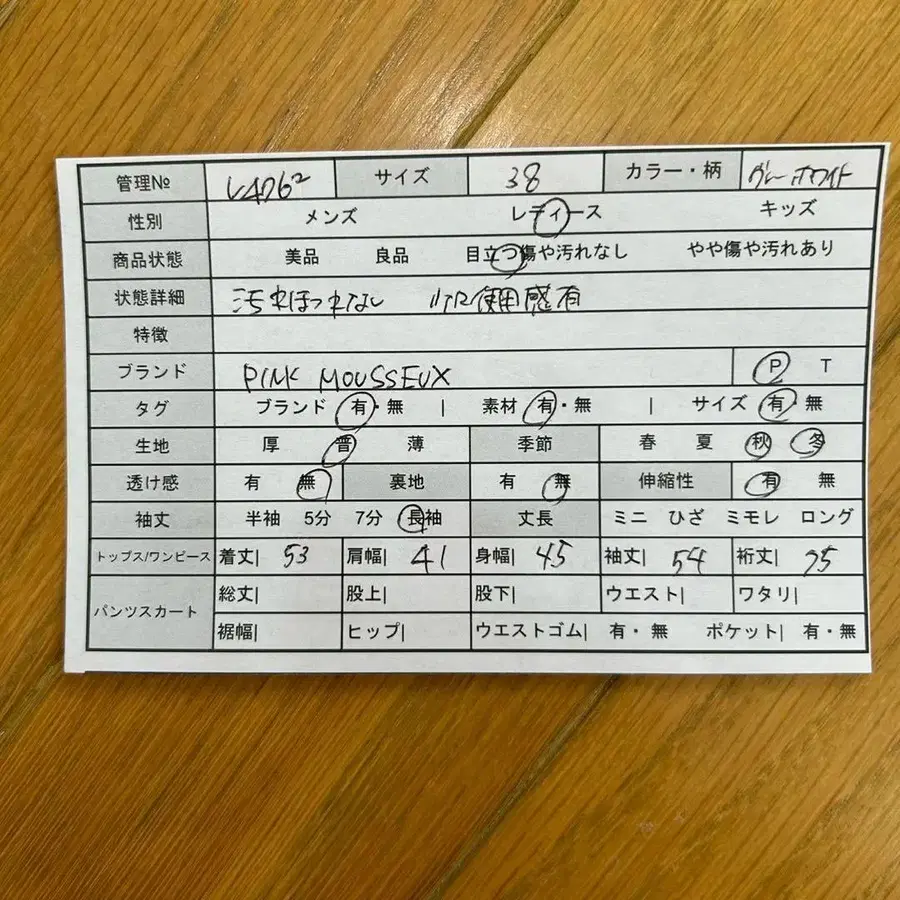 管理№ V4762 サイズ 38 カラー・柄 グレーホワイト
性別 メンズ レディース キッズ
商品状態 美品 良品 目立つ傷や汚れなし やや傷や汚れあり
状態詳細 汚れほつれなし 使用感有
特徴
ブランド PINK MOUSSEUX P T
タグ ブランド 有・無 | 素材 有・無 | サイズ 有・無
生地 厚 普 薄 季節 春 夏 秋 冬
透け感 有 無 裏地 有 無 伸縮性 有 無
袖丈 半袖 5分 7分 長袖 丈長 ミニ ひざ ミモレ ロング
トップス/ワンピース 着丈| 53 肩幅| 41 身幅| 45 袖丈| 54 裄丈| 75
パンツスカート 総丈| 股上| 股下| ウエスト| ワタリ|
裾幅| ヒップ| ウエストゴム| 有・無 ポケット| 有・無